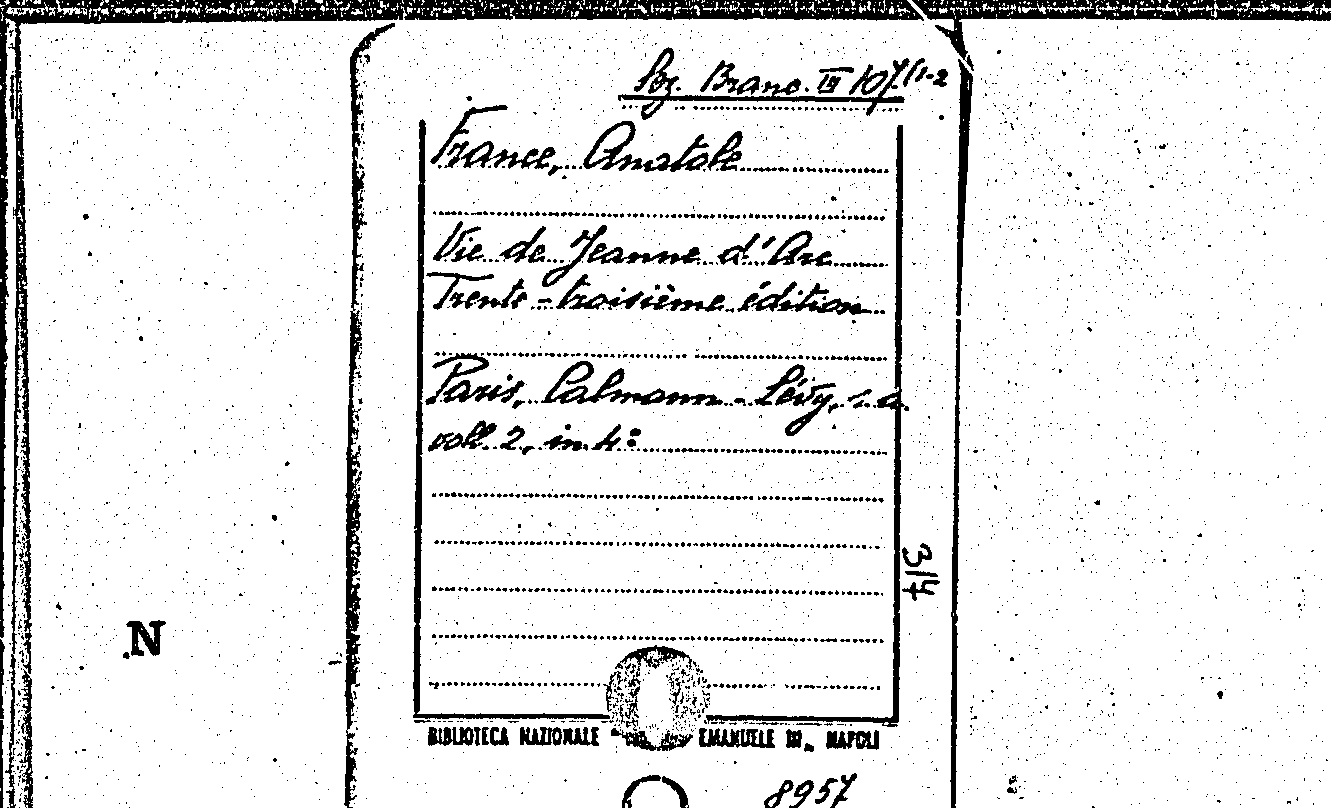 Sez. Branc. III 107/(1-2
France, Anatole
Vie de Jeanne d'Arc
Trente-troisième édition
Paris, Calmann-Lévy, s.a.
voll. 2, in 4:
314
N
BIBLIOTECA NAZIONALE " EMANUELE III„ NAPOLI
8957